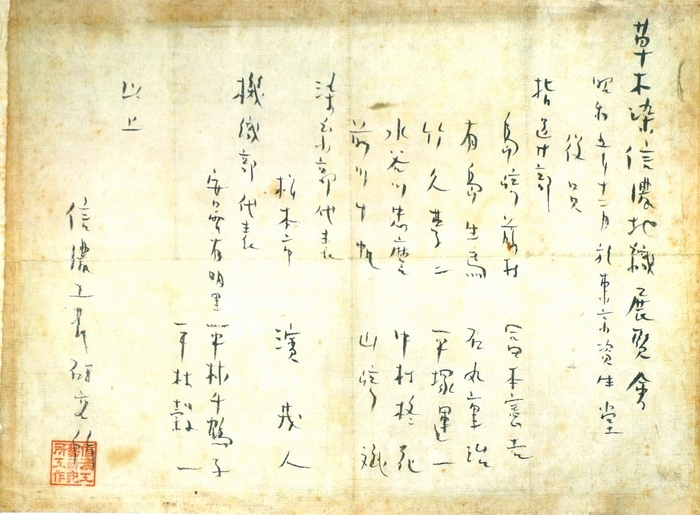 草木染信濃地織展覧会
昭和五年十二月於東京資生堂
役員
指導部
島崎藤村 富本憲吉
有島生馬 石丸重治
竹久夢二 平塚運一
水谷川忠麿 中村柊花
前川千帆 山崎斌
染糸部代表
松本市 濱 茂人
機織部代表
安曇有明里 平林千鶴子
平林穀一
以上
信濃工芸研究所
信濃工
藝研究
所工作